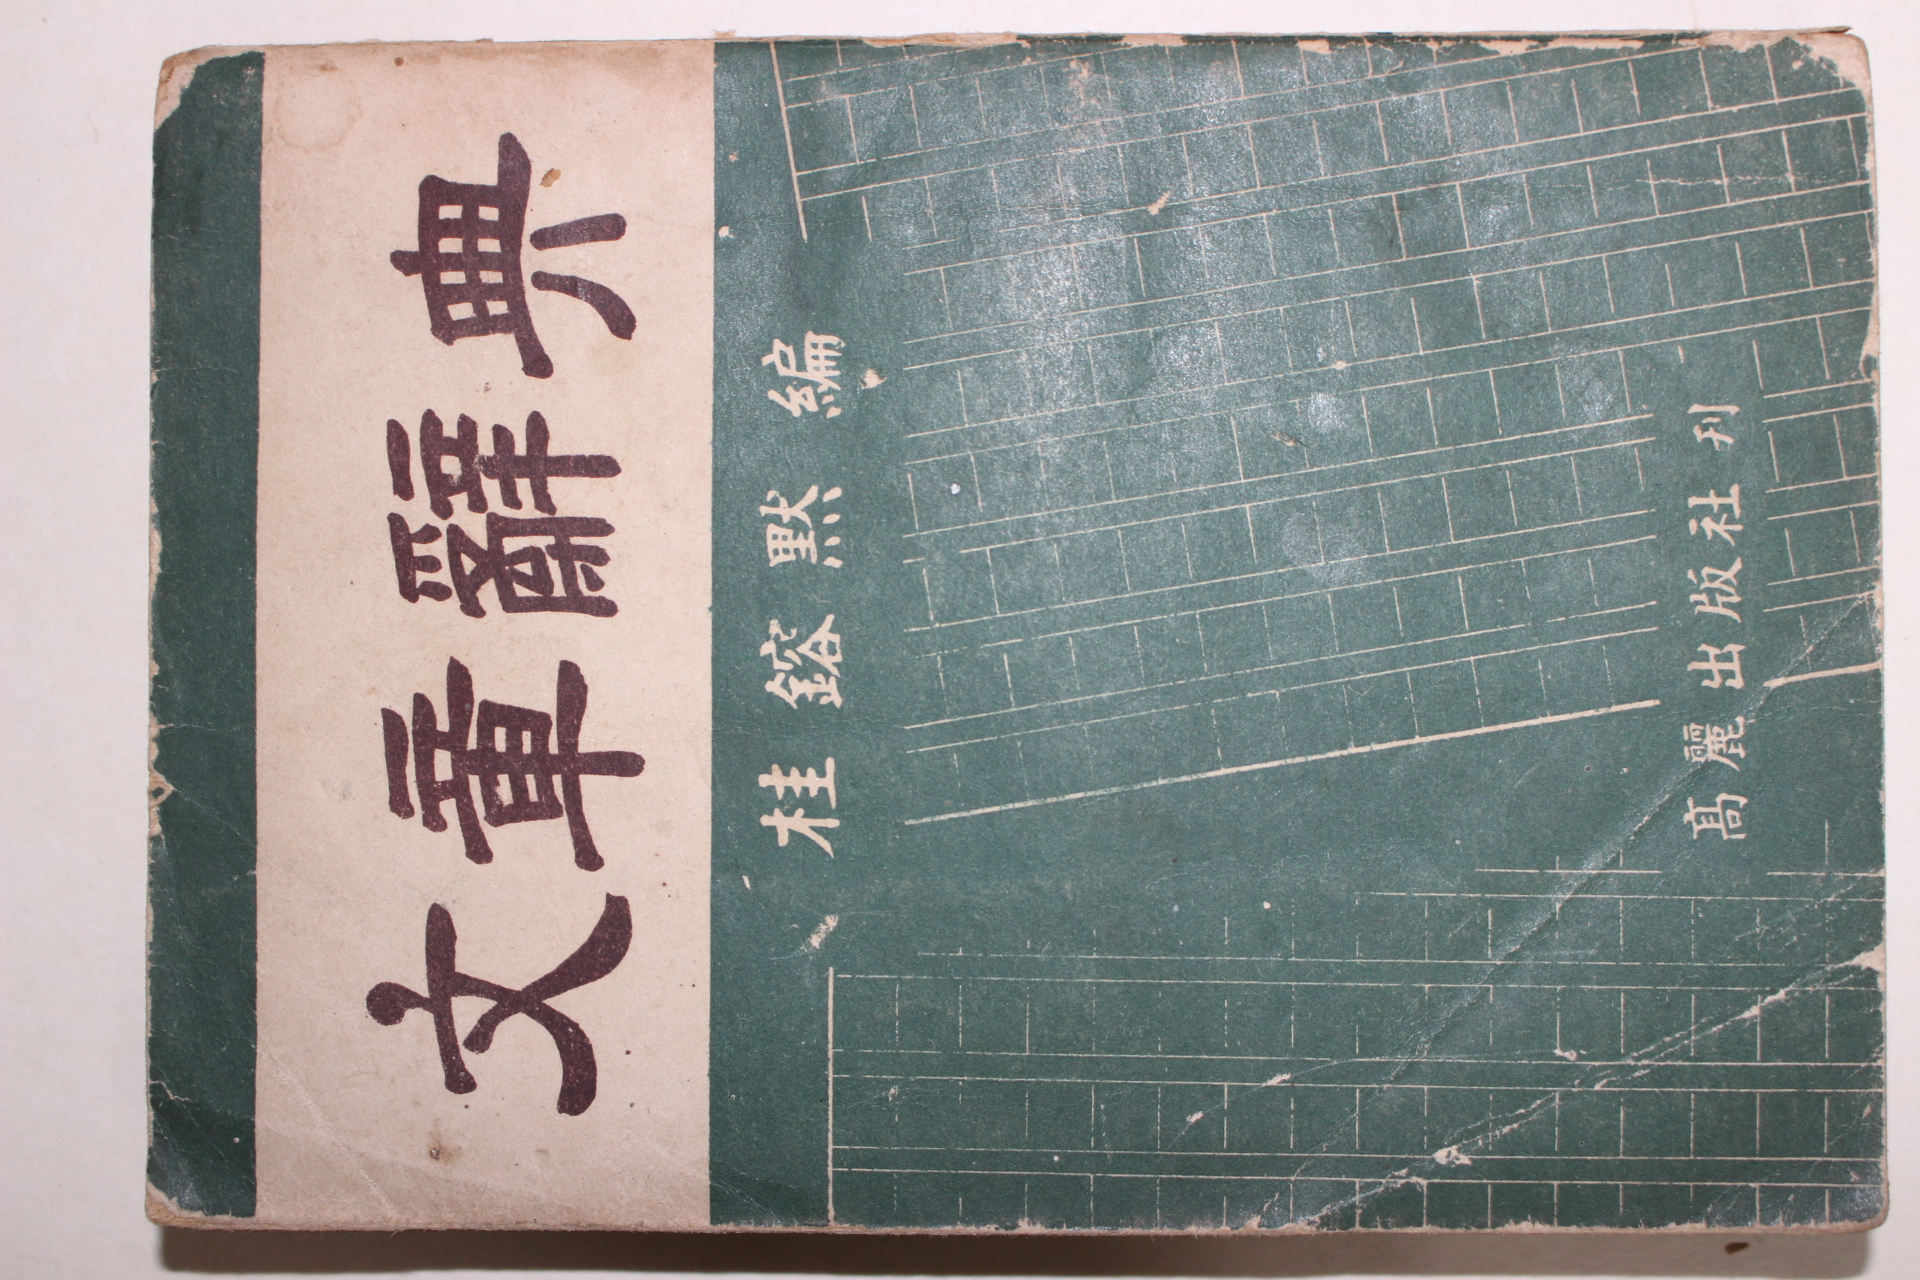 文章辭典
桂鎔默編
高麗出版社刊